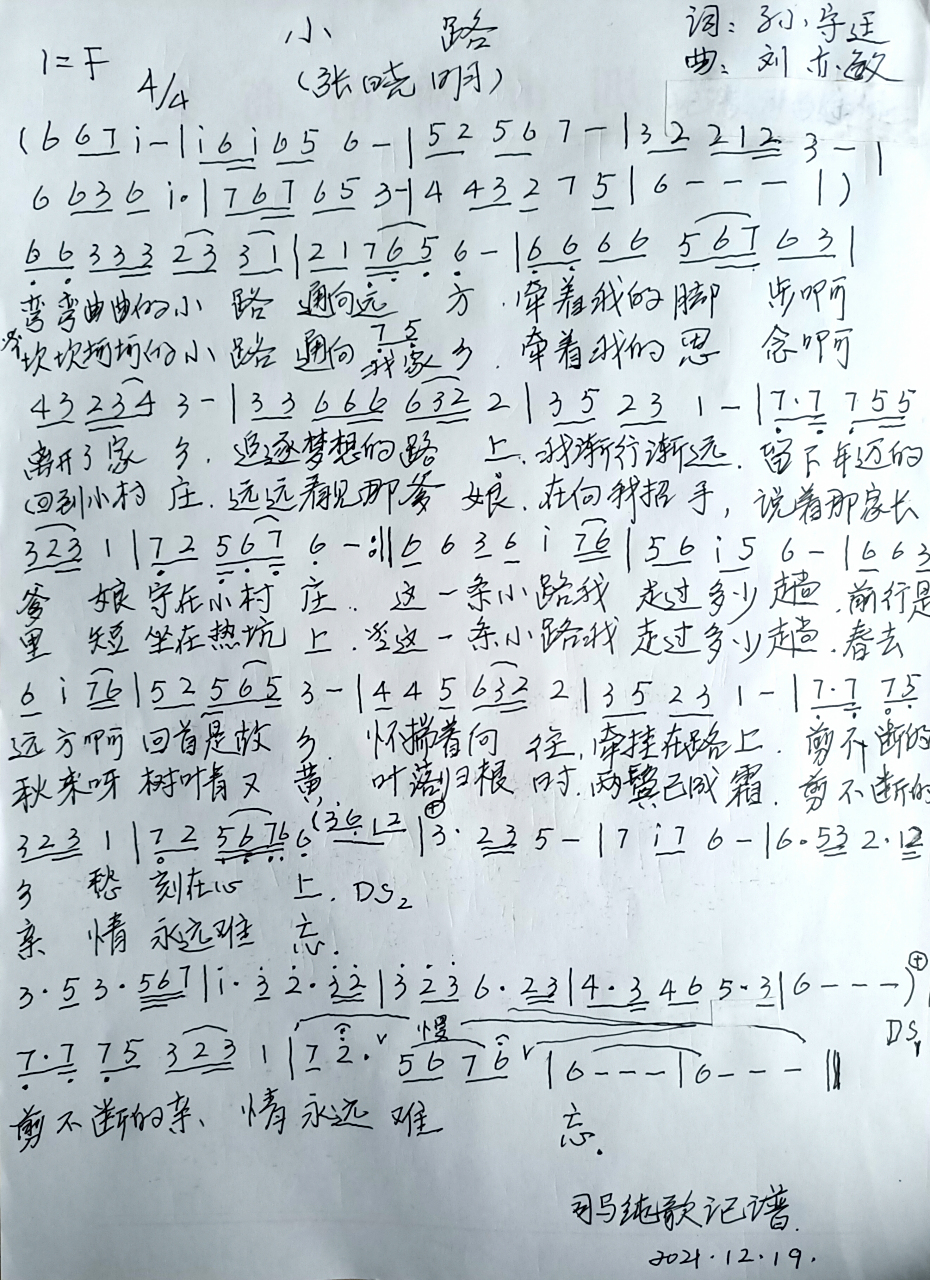 小 路
词：孙守廷
1=F 4/4 (张晓明) 曲：刘亦敏
(6 6 7 i - | i 6 i 6 5 6 - | 5 2 5 6 7 - | 3 2 2 1 2 3 - |
6 6 3 6 i· | 7 6 7 6 5 3 - | 4 4 3 2 7 5 | 6 - - - | )
6 6 3 3 3 2 3 3 1 | 2 1 7 6 5 6 - | 6 6 6 6 5 6 7 6 3 |
弯弯曲曲的小 路 通向远 方. 牵着我的脚 步啊
7 5
坎坎坷坷的小 路 通向 我家乡. 牵着我的思 念啊
4 3 2 3 4 3 - | 3 3 6 6 6 6 3 2 2 | 3 5 2 3 1 - | 7·7 7 5 5
离开了家 乡. 追逐梦想的路 上. 我渐行渐远. 留下年迈的
回到小村 庄. 远远看见那爹 娘. 在向我招 手, 说着那家长
3 2 3 1 | 7 2 5 6 7 6 - :|| 6 6 3 6 i 7 6 | 5 6 i 5 6 - | 6 6 3
爹 娘守在小村 庄. 这一条小路我 走过多少趟. 前行是
里 短坐在热坑 上. 这一条小路我 走过多少趟. 春去
6 i 7 6 | 5 2 5 6 5 3 - | 4 4 5 6 3 2 2 | 3 5 2 3 1 - | 7·7 7 5
远方啊 回首是故 乡. 怀揣着向 往, 牵挂在路上. 剪不断的
秋来呀 树叶青又 黄, 叶落归根 时. 两鬓已成 霜. 剪不断的
3 2 3 1 | 7 2 5 6 7 6 6 (3 6 1 2 | 3· 2 3 5 - | 7 i 7 6 - | 6·5 3 2·1 2
乡 愁 刻在心 上. DS2
亲 情 永远难 忘.
3·5 3·5 6 7 | i·3 2·3 2 | 3 2 3 6·2 3 | 4·3 4 6 5·3 | 6 - - - )
慢 DS1
7·7 7 5 3 2 3 1 | 7 2· 5 6 7 6 | 6 - - - | 6 - - - ||
剪不断的亲、情永远 难 忘.
司马纯歌记谱.
2021.12.19.